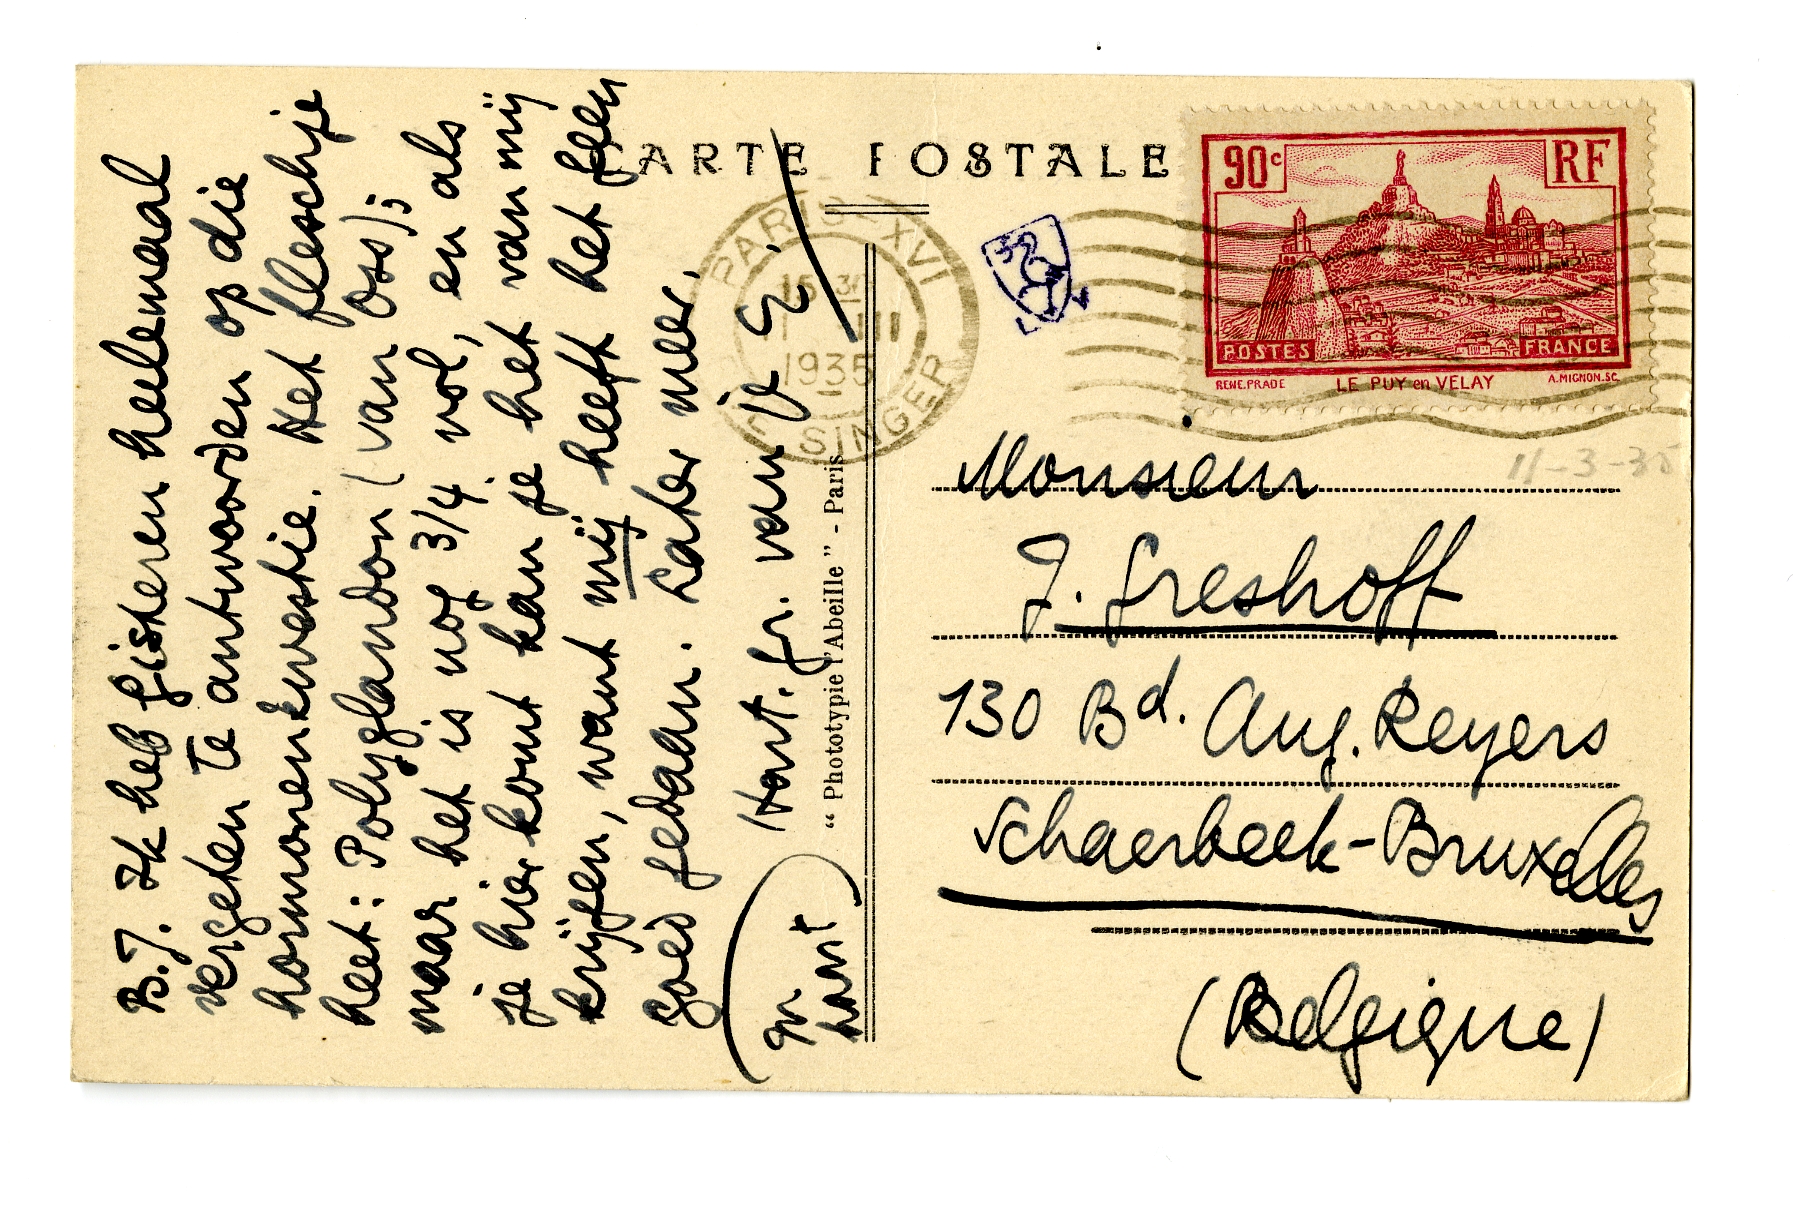 CARTE POSTALE
B.J. Ik heb gisteren heelemaal
vergeten te antwoorden op die
hormonenkwestie. Het fleschje
heet: Polyglandon (van Oss);
maar het is nog 3/4 vol, en als
je hier komt kan je het van mij
krijgen, want mij heeft het geen
goed gedaan. Later meer.
Hart. gr. van je E.
(gr.
hart
"Phototypie l'Abeille" - Paris
PARIS-XVI
15 30
11 III
1935
SINGER
90c
RF
POSTES
FRANCE
RENE.PRADE
LE PUY en VELAY
A.MIGNON.SC.
11-3-35
Monsieur
J. Greshoff
130 Bd. Aug. Reyers
Schaerbeek-Bruxelles
(Belgique)